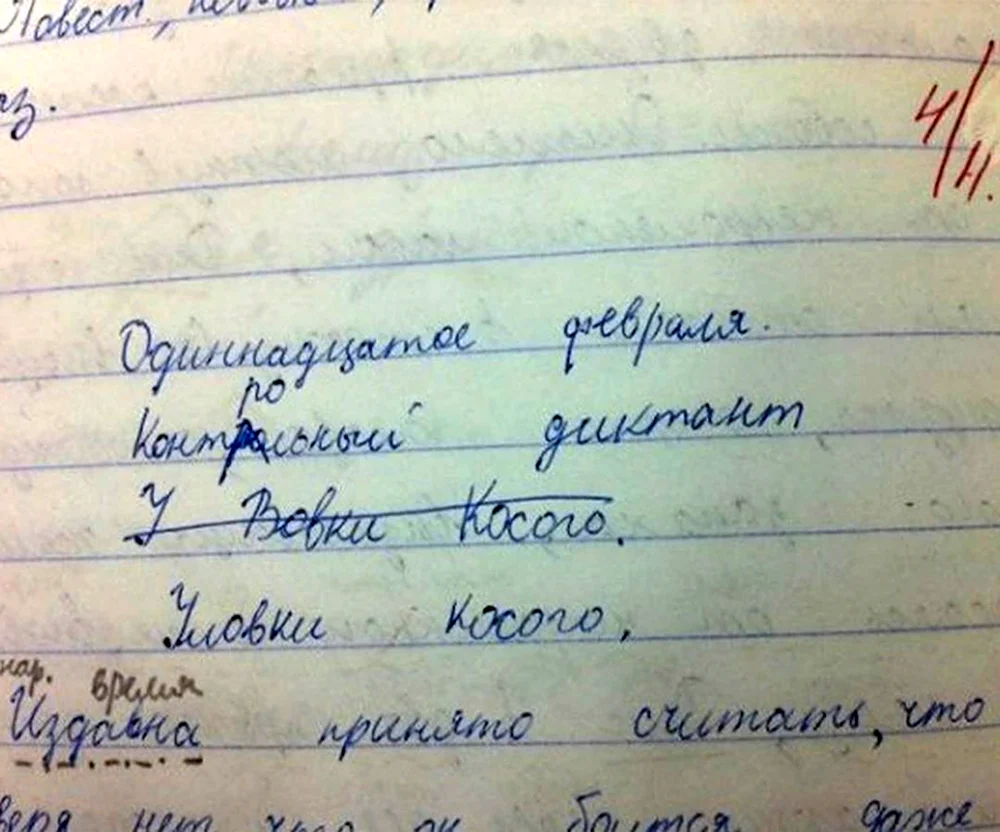 Повест.,
аз.
4/4.
Одиннадцатое февраля.
ро
Контрольный диктант
У Вовки Косого.
Уловки косого.
нар. время
Издавна принято считать, что
зверя нет, что он боится даже